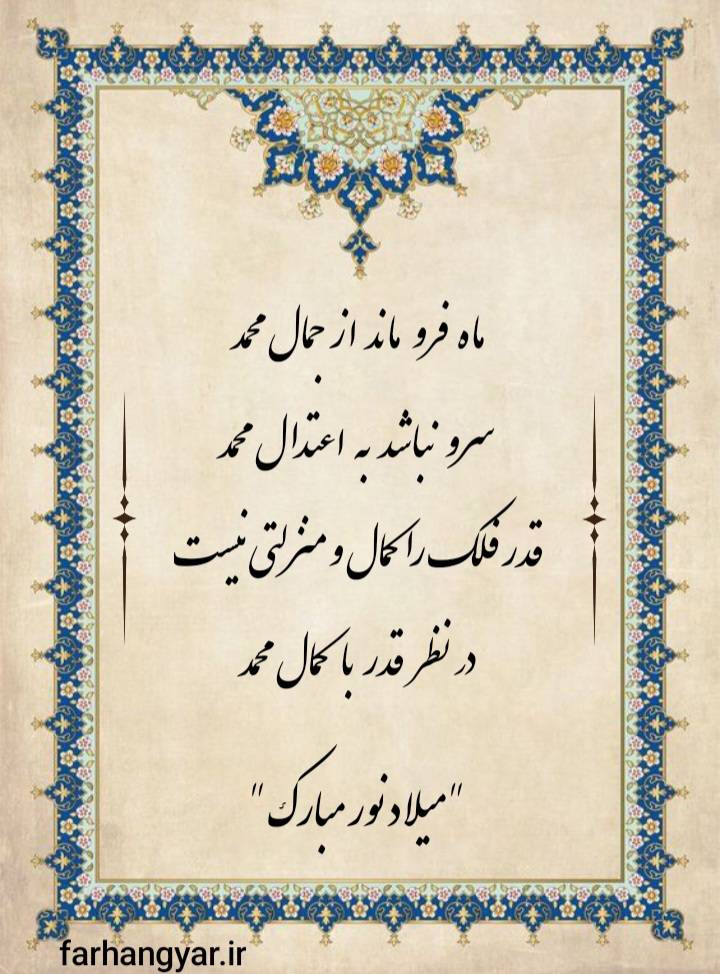 ماه فرو ماند از جمال محمد
سرو نباشد به اعتدال محمد
قدر فلک را کمال و منزلتی نیست
در نظر قدر با کمال محمد
"میلاد نور مبارک"
farhangyar.ir